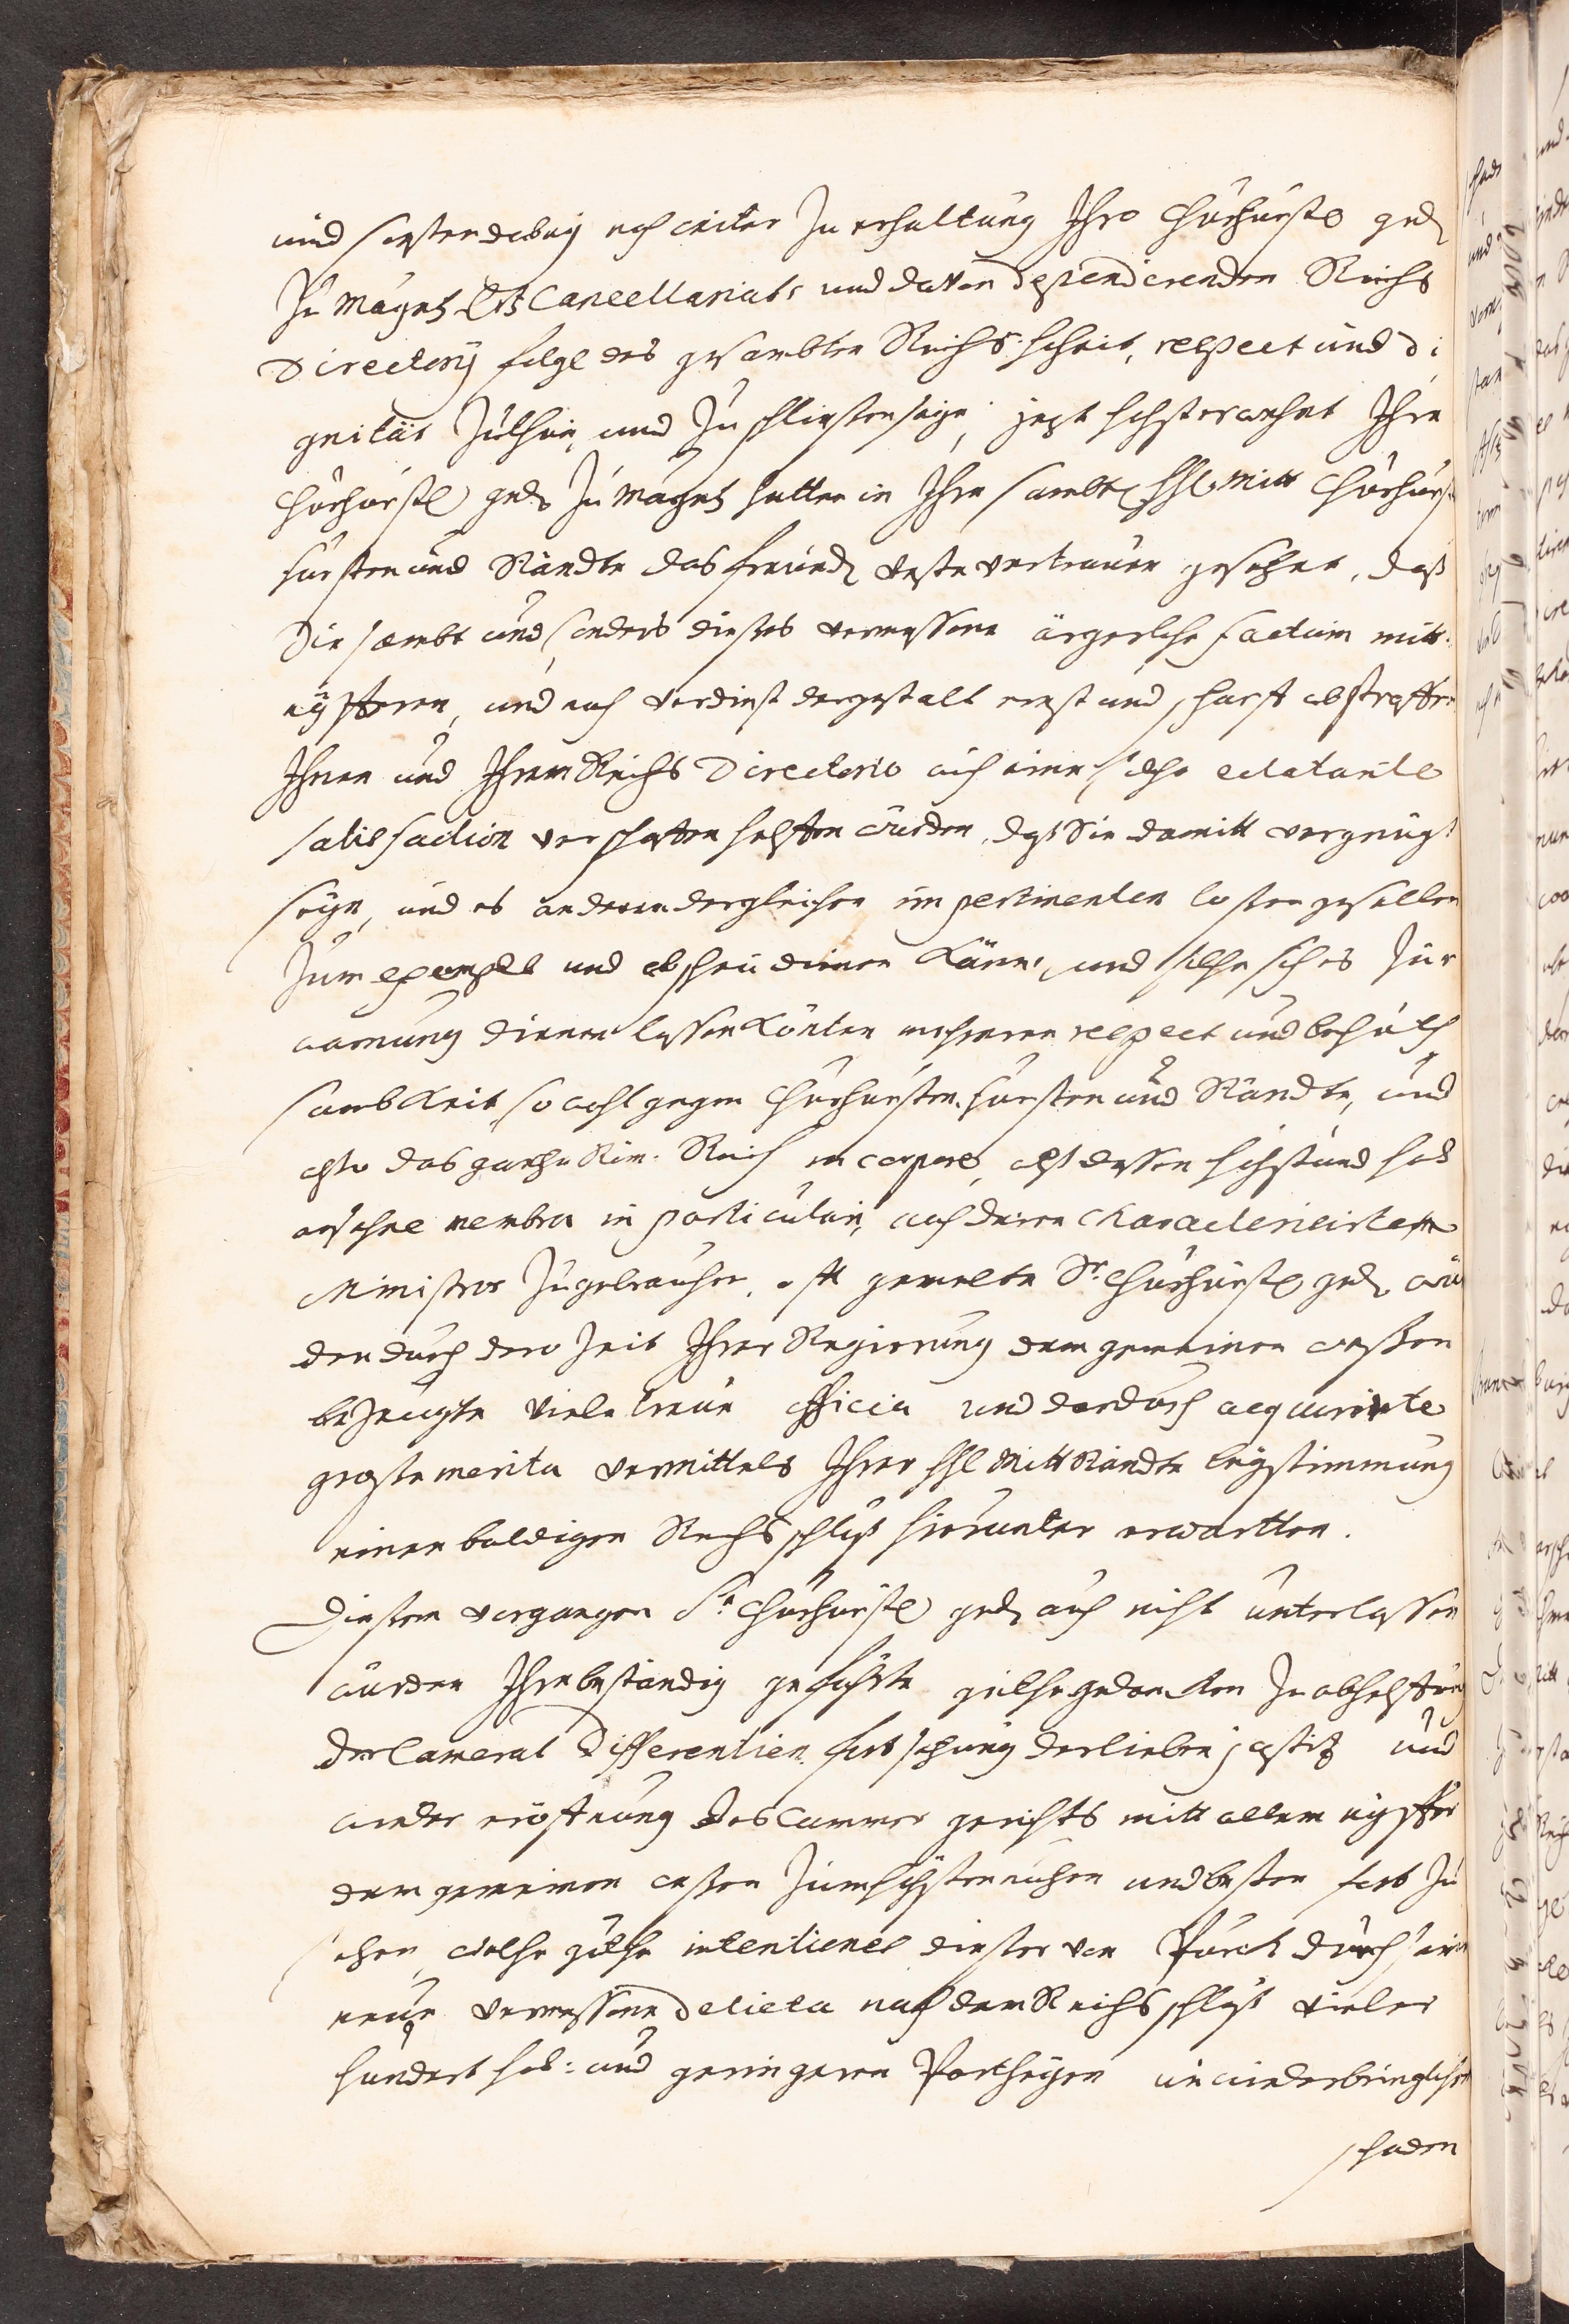 und sonsten dabey noch weiter Zu erhaltung Ihro Churfürstl gnd
Zu Mayntz Ertz Cancellariats und davon dependirenden Reichs
Directorij folge des gesambten Reichs hoheit, respect und di
gnität Zuthun, und Zu schliesten seye, jetzt höchsterwehnt Ihre
Churfürstl gnd Zu Mayntz hetten in Ihre sambtl hhl. Mitt Churfürst
fürsten und Ständte das freündl veste vertrauen gesetzet, daß
Sie sambt und sonders dieses vermessene ärgerliche factum mitt
eyfferen, und nach verdienst dergestalt ernst und scharff abstraffen
Ihnen und Ihrem Reichs Directorio auch eine solche eclatante
satisfaction verschaffen helffen würden, daß Sie damitt vergnügt
seyn, und es anderen dergleichen impertinenten losten gesellen
Zum exempel und abscheu dienen Könne, und solche sich es Zur
warnung dienen lassen Könten mehreren respect und behuth
sambkeit, so wohl gegen Churfürsten, fürsten und Ständte, und
also das gantze Röm. Reich in corpore, alß dessen höchst und hoch
ansehne membra in particulari, auch deren characterisirten
Ministros Zugebrauchen, offt gemelte Sr. Churfürstl gnd wür
den durch dero Zeit Ihrer Regierung dem gemeinen weßen
bezeugte viele treue officia und dardurch acquirirte
groste merita vermittels Ihrer hhl Mitt Ständte beystimmung
einen baldigen Reichsschluß hierunter erwartten.
Diesem vorgangen Sr. Churfürstl gnd auch nicht unterlassen
würden Ihre beständig geführte guthe gedancken Zu abhelffung
der Cameral Differentien, fortsetzung der lieben justitz und
wieder eröffnung des Cammer gerichts mitt allem eyffer
dem gemeinen weßen Zum höchsten nutzen und besten fort Zu
setzen, welche guthe intentiones dieser von Pürck durch seine
neue vermessene Delicta nach dem Reichsschluß vieler
hundert hoh: und geringeren Partheyen unwiederbringlichen
schaden